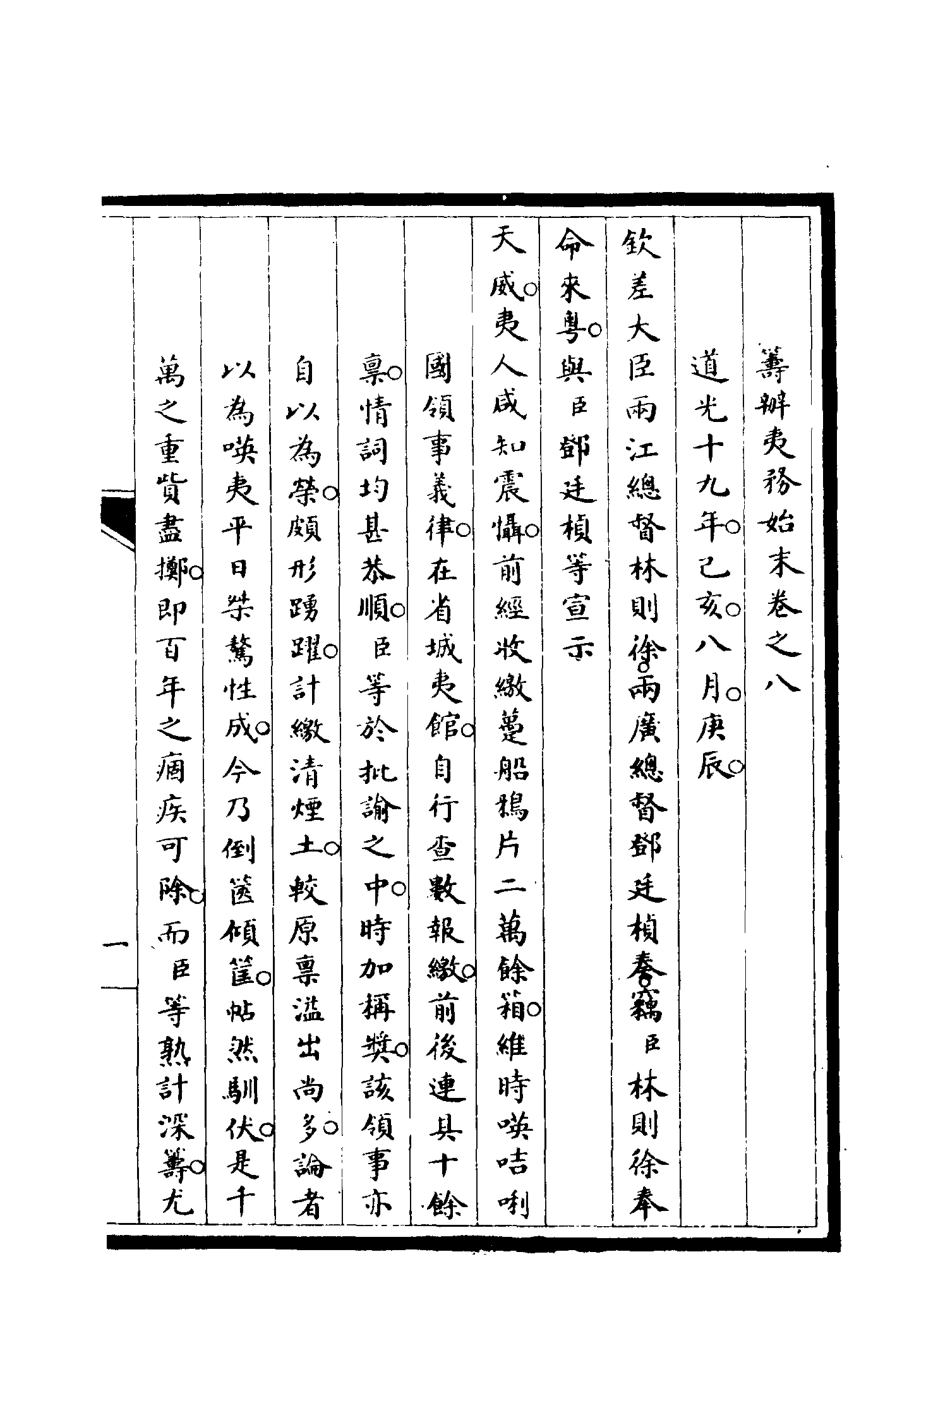 籌辦夷務始末卷之八
道光十九年。己亥。八月。庚辰。
欽差大臣兩江總督林則徐。兩廣總督鄧廷楨奏。竊臣林則徐奉
命來粵。與臣鄧廷楨等宣示
天威。夷人咸知震懾。前經收繳躉船鴉片二萬餘箱。維時暎咭唎
國領事義律。在省城夷館。自行查數報繳。前後連具十餘
稟。情詞均甚恭順。臣等於批諭之中。時加稱獎。該領事亦
自以為榮。頗形踴躍。計繳清煙土。較原稟溢出尚多。論者
以為暎夷平日桀驁性成。今乃倒篋傾筐。帖然馴伏。是千
萬之重貲盡擲。即百年之痼疾可除。而臣等熟計深籌。尤
一